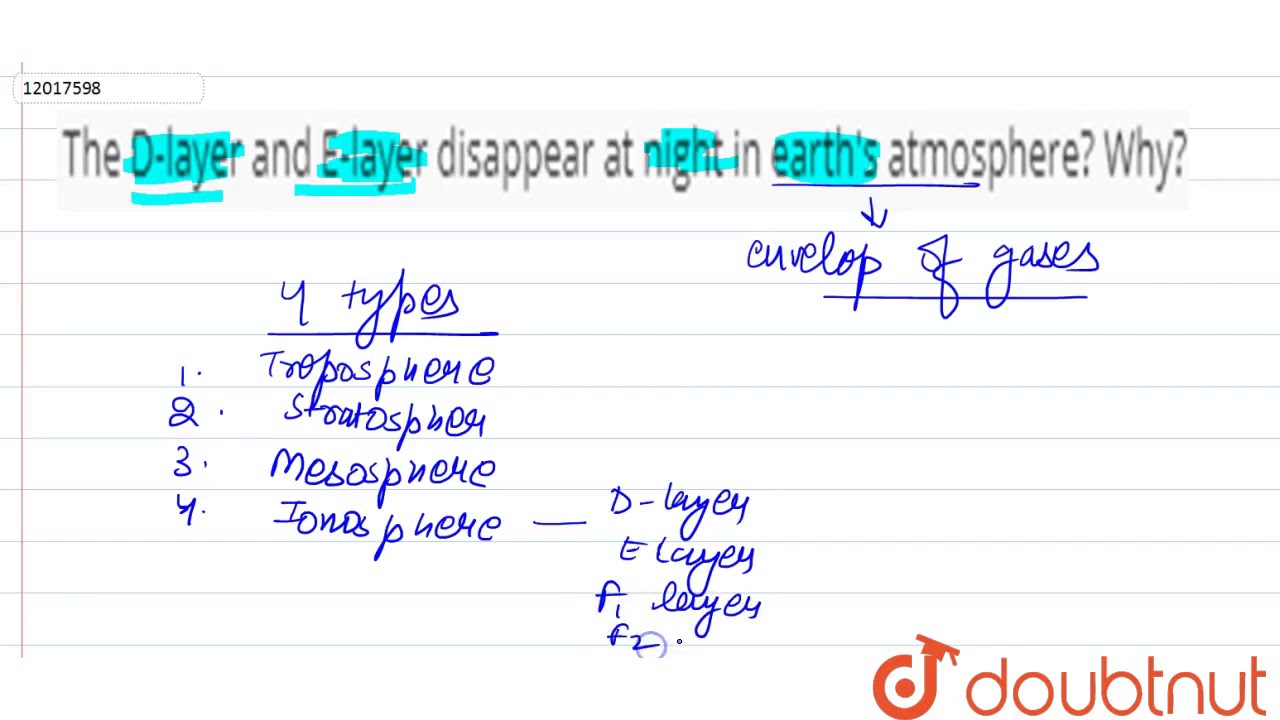 12017598
The D-layer and E-layer disappear at night in earth's atmosphere? Why?
envelop of gases
4 types
1. Troposphere
2. Stratospher
3. Mesosphere
4. Ionosphere — D-layer
E layer
F1 layer
F2
doubtnut